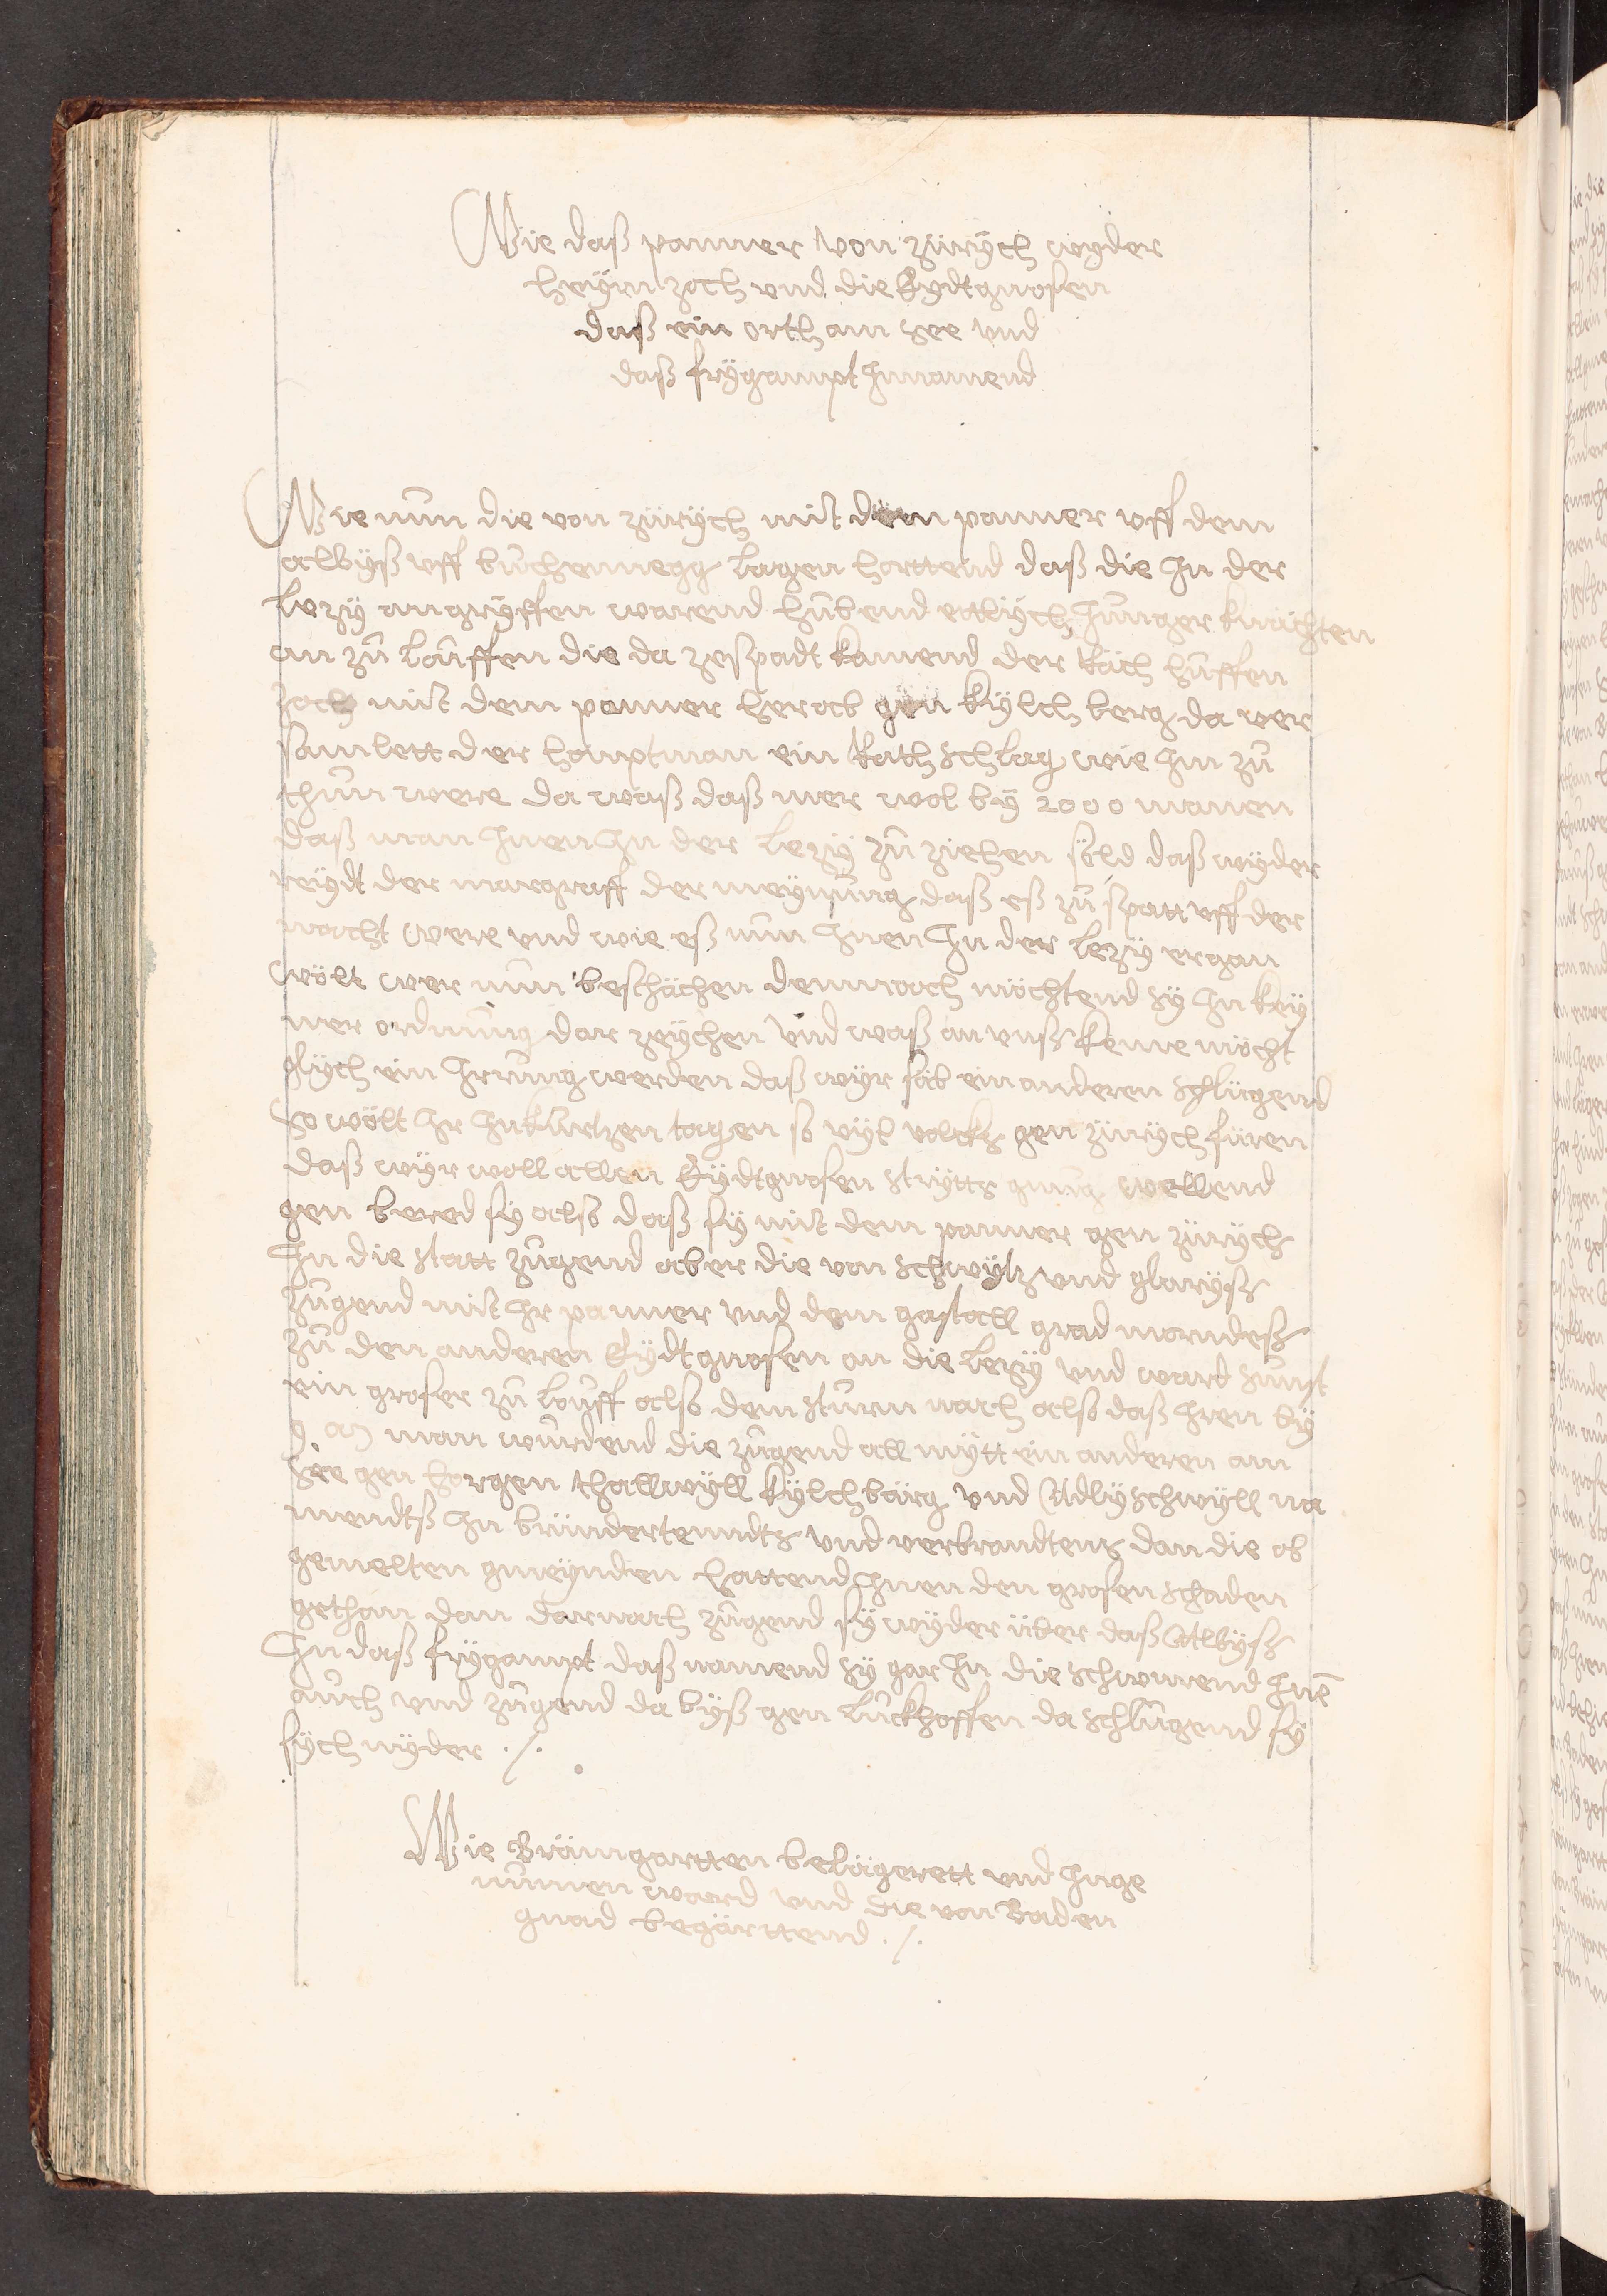 Wie daß panner von zürÿch wyder
heÿm zoch vnd die Eydtgnosen
daß ein orth am see vnd
daß frÿgampt Innamend
Wie nun die von zürÿch mit dem panner vff dem
albÿß vff bůchennegg lagen hortend daß die In der
lezÿ angrÿffen warend hůbend ettlÿch Junger knächten
an zů louffen die da zespadt kamend der Räch huffen
zoch mit dem panner herab gen kÿlchberg da ver
samlett der houptman ein Rathschlag wie Im zů
thůn were da waß daß mer wol bÿ 2000 manen
daß man Inen In der lezÿ zů ziehen söld daß wÿder
reÿdt der margraff der meÿnung daß eß zů spatt vff der
nacht were vnd wie eß nun Inen In der lezÿ ergan
wölt wer nun beschächen dennnoch möchtend sÿ In keÿ
ner ordnung dar zeÿchen vnd waß an vnß keme möcht
glÿch ein Irrung werden daß wÿr sälb ein anderen schlügend
so wölt Ir In kurtzen tagen so vÿl volcks gen zürÿch füren
daß wÿr woll allen Eÿdtgnosen strÿtts gnug wellend
gen bered sÿ also daß sÿ mit dem panner gen zürÿch
In die statt zugend aber die von schwÿtz vnd glarÿß
zugend mit Ir panner vnd dem gastall grad morndeß
zů den anderen Eÿdtgnosen an die lezÿ vnd ward sunst
ein groser zů louff also dem sturm nach also daß Iren bÿ
man wurdend die zugend all mÿtt ein anderen am
see gen horgen thallwÿll kÿlchbärg vnd Adlÿschwÿll na
mendtß In bründertenndts vnd verbrandtens dan die ob
gemelten gmeÿnden hattend Inen den grosen schaden
gethan dan darnach zugend sÿ wÿder über daß Albÿß
In daß frÿgampt daß namend sÿ gar In die schwurend Inē
auch vnd zugend da byß gen lunckhoffen da schlůgend sÿ
sÿch nÿder ./.
Wie Brämgartten belägerett vnd Inge
numen ward vnd die von Baden
gnad begärttend ./.